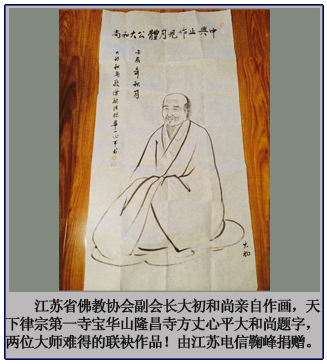 中興止作見月體公大和尚
壬辰年秋月
大初
江苏省佛教协会副会长大初和尚亲自作画，天
下律宗第一寺宝华山隆昌寺方丈心平大和尚题字，
两位大师难得的联袂作品！由江苏电信鞠峰捐赠。